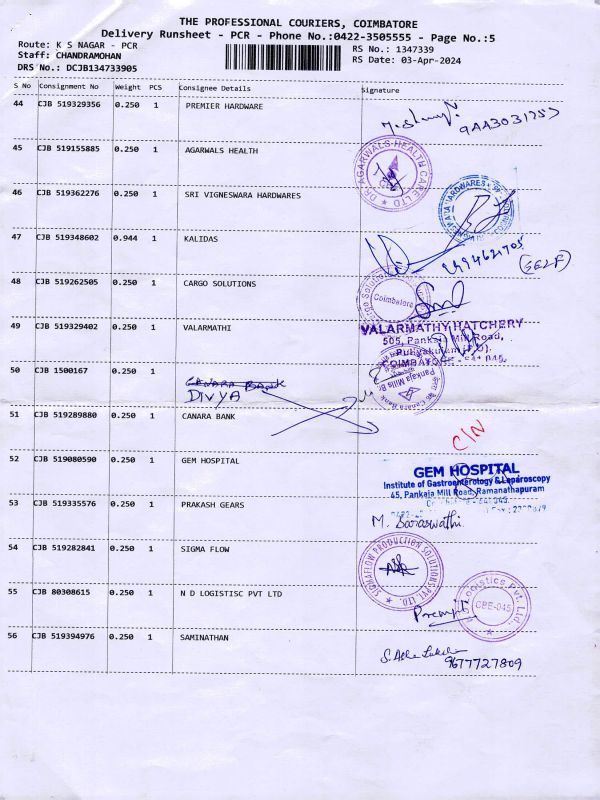 THE PROFESSIONAL COURIERS, COIMBATORE
Delivery Runsheet - PCR - Phone No.:0422-3505555 - Page No.:5
Route: K S NAGAR - PCR
RS No.: 1347339
Staff: CHANDRAMOHAN
RS Date: 03-Apr-2024
DRS No.: DCJB134733905
S No Consignment No Weight PCS Consignee Details Signature
44 CJB 519329356 0.250 1 PREMIER HARDWARE
45 CJB 519155885 0.250 1 AGARWALS HEALTH
DR.AGARWALS HEALTH CARE LTD
46 CJB 519362276 0.250 1 SRI VIGNESWARA HARDWARES
47 CJB 519348602 0.944 1 KALIDAS
(SELF)
48 CJB 519262505 0.250 1 CARGO SOLUTIONS
Coimbatore
49 CJB 519329402 0.250 1 VALARMATHI
VALARMATHY HATCHERY
505, Pankaja Mill Road,
Puliyakulam (P.O).
COIMBATORE - 641 045.
50 CJB 1500167 1
CANARA BANK
DIVYA
Pankaja Mills Br
Canara Bank
51 CJB 519289880 0.250 1 CANARA BANK
C/N
52 CJB 519080590 0.250 1 GEM HOSPITAL
GEM HOSPITAL
Institute of Gastroenterology & Laparoscopy
45, Pankaja Mill Road, Ramanathapuram
53 CJB 519335576 0.250 1 PRAKASH GEARS
M. Saraswathi.
54 CJB 519282841 0.250 1 SIGMA FLOW
SIGMAFLOW PRODUCTION SOLUTIONS PVT. LTD.
55 CJB 80308615 0.250 1 N D LOGISTISC PVT LTD
Logistics Pvt. Ltd.
CBE-045
56 CJB 519394976 0.250 1 SAMINATHAN
9677727809